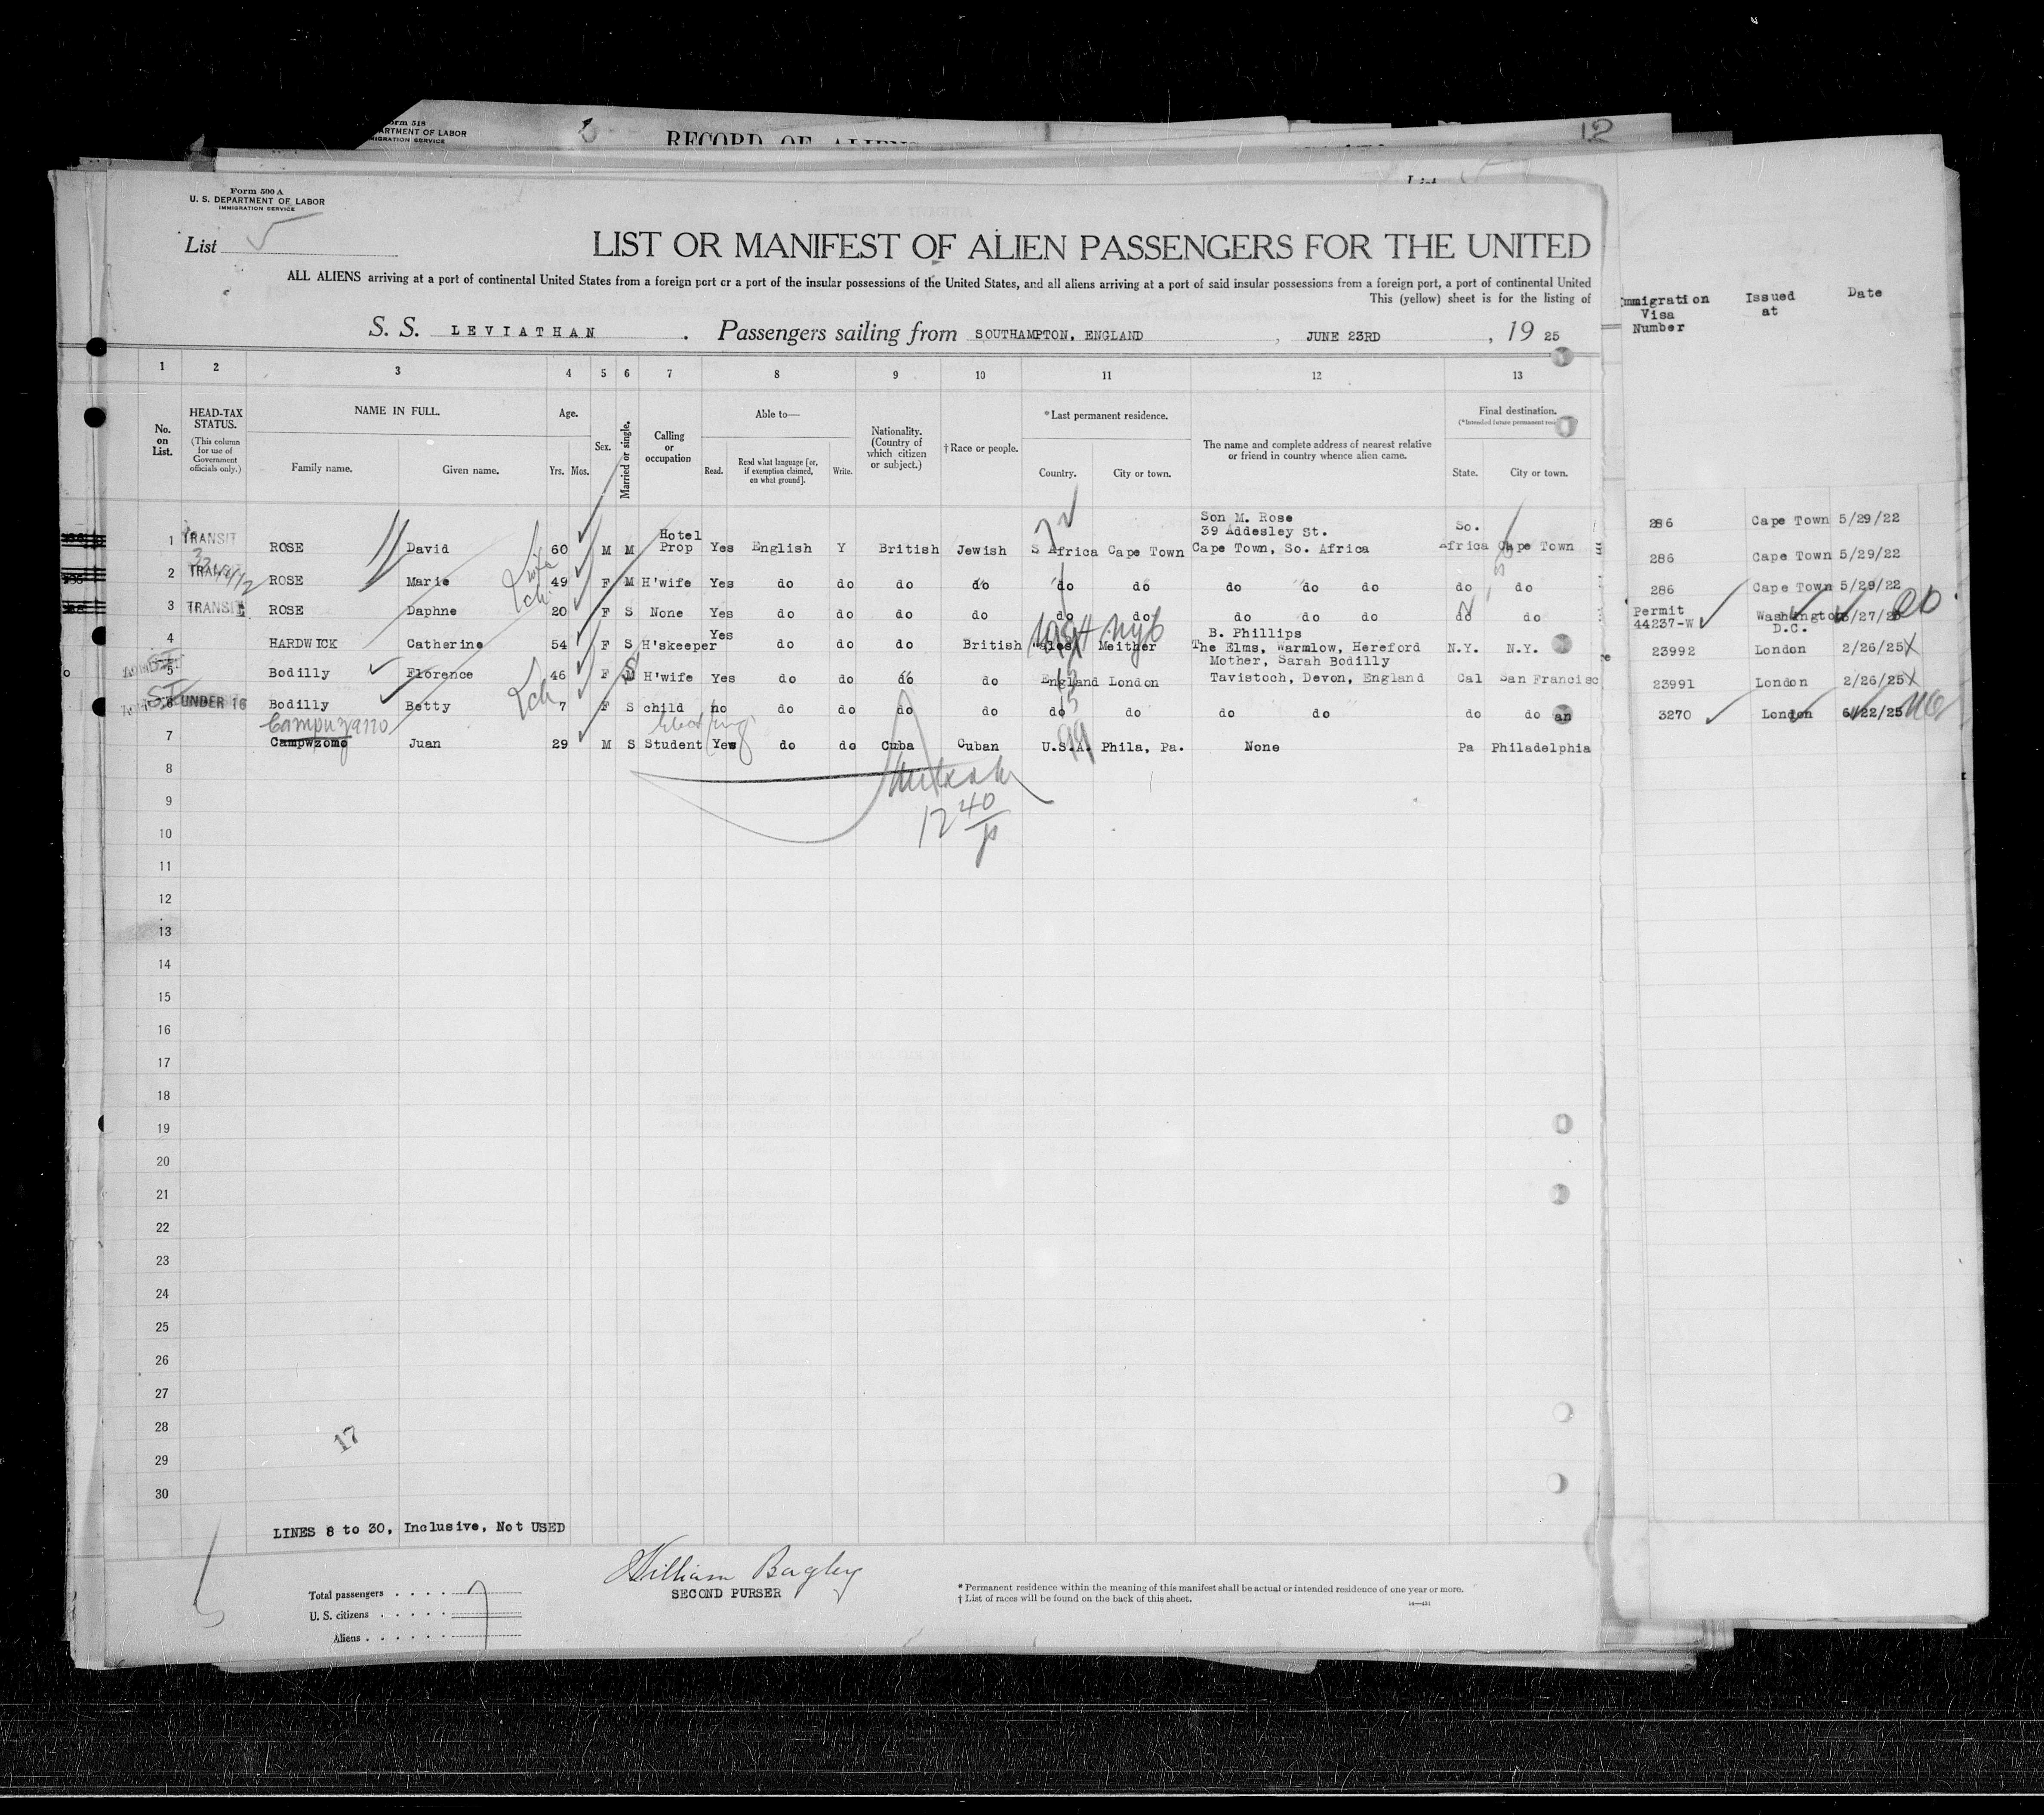 Form 518
DEPARTMENT OF LABOR
IMMIGRATION SERVICE
RECORD OF ALIENS
12
Form 500 A
U. S. DEPARTMENT OF LABOR
IMMIGRATION SERVICE
List 5
LIST OR MANIFEST OF ALIEN PASSENGERS FOR THE UNITED
ALL ALIENS arriving at a port of continental United States from a foreign port or a port of the insular possessions of the United States, and all aliens arriving at a port of said insular possessions from a foreign port, a port of continental United
This (yellow) sheet is for the listing of
S. S. LEVIATHAN . Passengers sailing from SOUTHAMPTON, ENGLAND , JUNE 23RD , 19 25
Immigration Visa Number Issued at Date
1 2 3 4 5 6 7 8 9 10 11 12 13
No. on List. HEAD-TAX STATUS. (This column for use of Government officials only.) NAME IN FULL. Family name. Given name. Age. Yrs. Mos. Sex. Married or single. Calling or occupation Able to— Read. Read what language [or, if exemption claimed, on what ground]. Write. Nationality. (Country of which citizen or subject.) † Race or people. *Last permanent residence. Country. City or town. The name and complete address of nearest relative or friend in country whence alien came. Final destination. (*Intended future permanent res State. City or town.
Son M. Rose
39 Addesley St.
1 TRANSIT ROSE David 60 M M Hotel Prop Yes English Y British Jewish S Africa Cape Town Cape Town, So. Africa So. Africa Cape Town 286 Cape Town 5/29/22
2 TRANSIT ROSE Marie wife 49 F M H'wife Yes do do do do do do do do do do do 286 Cape Town 5/29/22
3 TRANSIT ROSE Daphne ch 20 F S None Yes do do do do do do do do do do do 286 Cape Town 5/29/22
4 HARDWICK Catherine 54 F S H'skeeper Yes do do do British Wales Meither B. Phillips
The Elms, Warmlow, Hereford N.Y. N.Y. Permit 44237-W Washington D.C.
5 Bodilly Florence 46 F M H'wife Yes do do do do England London Mother, Sarah Bodilly
Tavistoch, Devon, England Cal San Francisc 23992 London 2/26/25
6 UNDER 16 Bodilly Betty ch 7 F S child no do do do do do do do do do do an 23991 London 2/26/25
Campuzano
7 Campwzomo Juan 29 M S Student Yes do do Cuba Cuban U.S.A. Phila, Pa. None Pa Philadelphia 3270 London 6/22/25
99
8
12 40
9
10
11
12
13
14
15
16
17
18
19
20
21
22
23
24
25
26
27
28
17
29
30
LINES 8 to 30, Inclusive, Not USED
William Bagley
SECOND PURSER
Total passengers 7
U. S. citizens
Aliens
* Permanent residence within the meaning of this manifest shall be actual or intended residence of one year or more.
† List of races will be found on the back of this sheet.